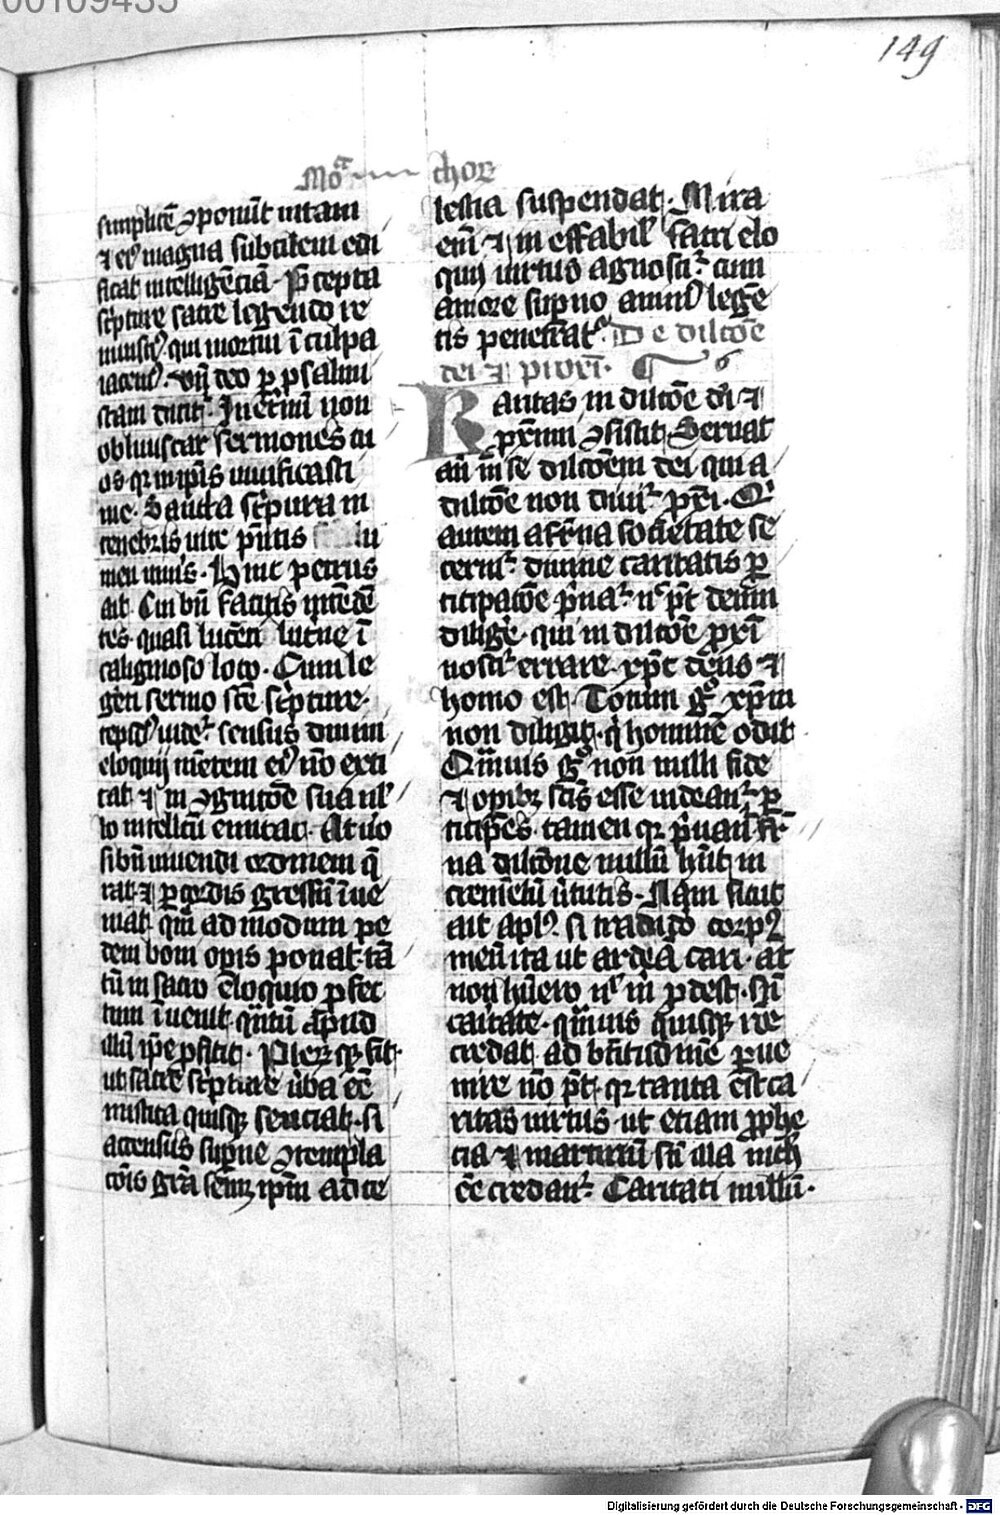 149
simplicē ꝯponūt uitam
⁊ eiꝰ magna subtilem edi
ficat intelligēciā. P̄cepta
sc̄pture sacre legendo re
qui mortui ī culpa
Vn̄ deo ꝑ psalmi
stam dicit. In et̄nū non
obliuiscar sermones tu
os qr in ip̄is uiuificasti
me. Sancta sc̄ptura in
tenebris uite p̄ntis lu
men. Hinc petrus
ait Cui bn̄ facitis intēdē
tes quasi lucern lucine ī
caliginoso loco. Cum le
gen sermo sc̄e sc̄pture
sensus diuini
eloquij mētem eiꝰ nō exci
tat ⁊ in ꝯgitōe sua nl̓
lo intellc̄u emicat. At uo
si bn̄ uiuendi ordinem q̄
rat ⁊ ꝑ cordis gressū īue
niat qm̄ ad modum pe
dem boni opis ponat tā
tū in sacro eloquio ꝓfec
tum īuenit q̄ntū apud
illū ip̄e ꝓficit. Pler sqꝫ fit
ut sacre sc̄pture ūba eē
mistica quisqꝫ senciat si
accensus sup̄ne ꝯtempla
cōis grā semꝫ ip̄m ad ce
lestia suspendat. Mira
eni ⁊ in effabil̓ sacri elo
quij uirtus agnoscit cum
amore sup̄no animꝰ legē
tis penetrat De dilcōe
dei ⁊ p̄ximi. 6
Karitas in dilcōe dei ⁊
p̄ximi ꝯsistit. Seruat
aū in se dilcōem dei qui a
dilcōe non diuidit p̄xi. Qi
autem a fr̄na societate se
cernit diuine caritatis ꝑ
ticipacōe p̄uat n̓ pt deum
dilige qui in dilcōe ꝓxi
noscit errare. xp̄c deus ⁊
homo est. Totum gͦ xp̄m
non diligit q̓ hominē odit
Q̄muis gͦ non nulli fide
⁊ opibꝫ sc̄is esse uidean ꝑ
ticipes tamen qr p̄uant fr̄
na dilcōne nullū hn̄t in
cremetū ūtutis. Nam sicut
ait apl̓s si tradido corpꝰ
meū ita ut ardeā cari. at
non hūero n̓ m̄ ꝓdest. Si
caritate q̄muis quisqꝫ re
credat ad btitudinē ꝑue
nire nō pt qr tanta est ca
ritas uirtus ut etiam ꝓphe
cia ⁊ martirium sn̄ illa nichl̓
eē credant. Caritati nullū
Digitalisierung gefördert durch die Deutsche Forschungsgemeinschaft - DFG